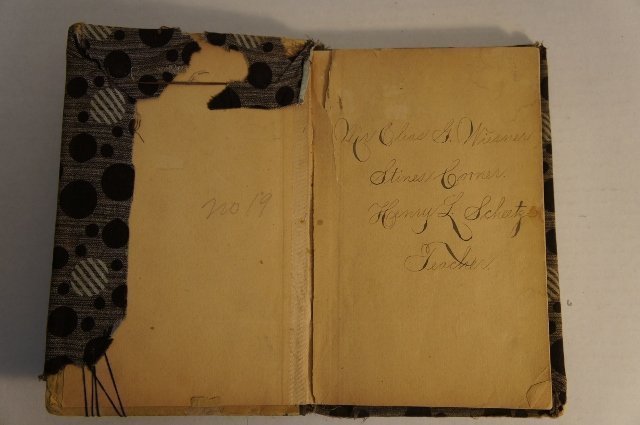 no 19
Mr Elias A. Wiesner
Stines Corner.
Henry L. Scheetz
Teacher